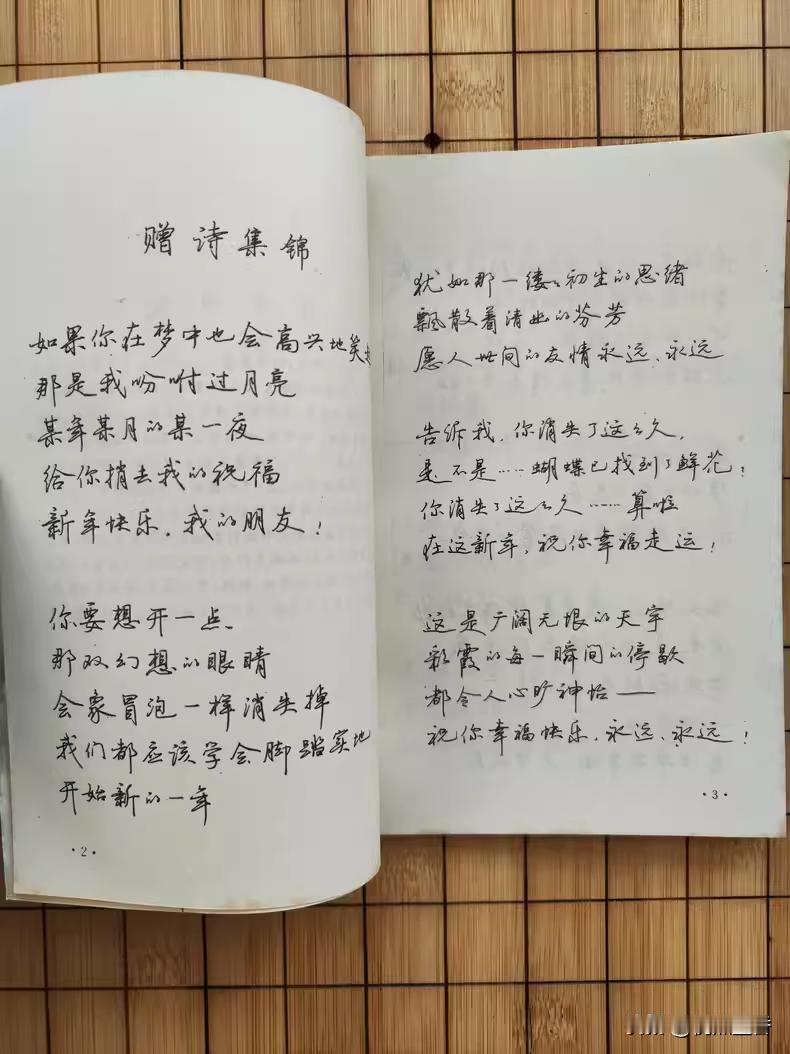 赠诗集锦
如果你在梦中也会高兴地笑
那是我吩咐过月亮
某年某月的某一夜
给你捎去我的祝福
新年快乐，我的朋友！
你要想开一点、
那双幻想的眼睛
会象冒泡一样消失掉
我们都应该学会脚踏实地
开始新的一年
·2·
犹如那一缕々初生的思绪
飘散着清幽的芬芳
愿人世间的友情永远、永远
告诉我，你消失了这么久，
是不是……蝴蝶已找到了鲜花？
你消失了这么久……算啦
在这新年，祝你幸福走运！
这是广阔无垠的天宇
彩霞的每一瞬间的停歇
都令人心旷神怡——
祝你幸福快乐，永远、永远！
·3·